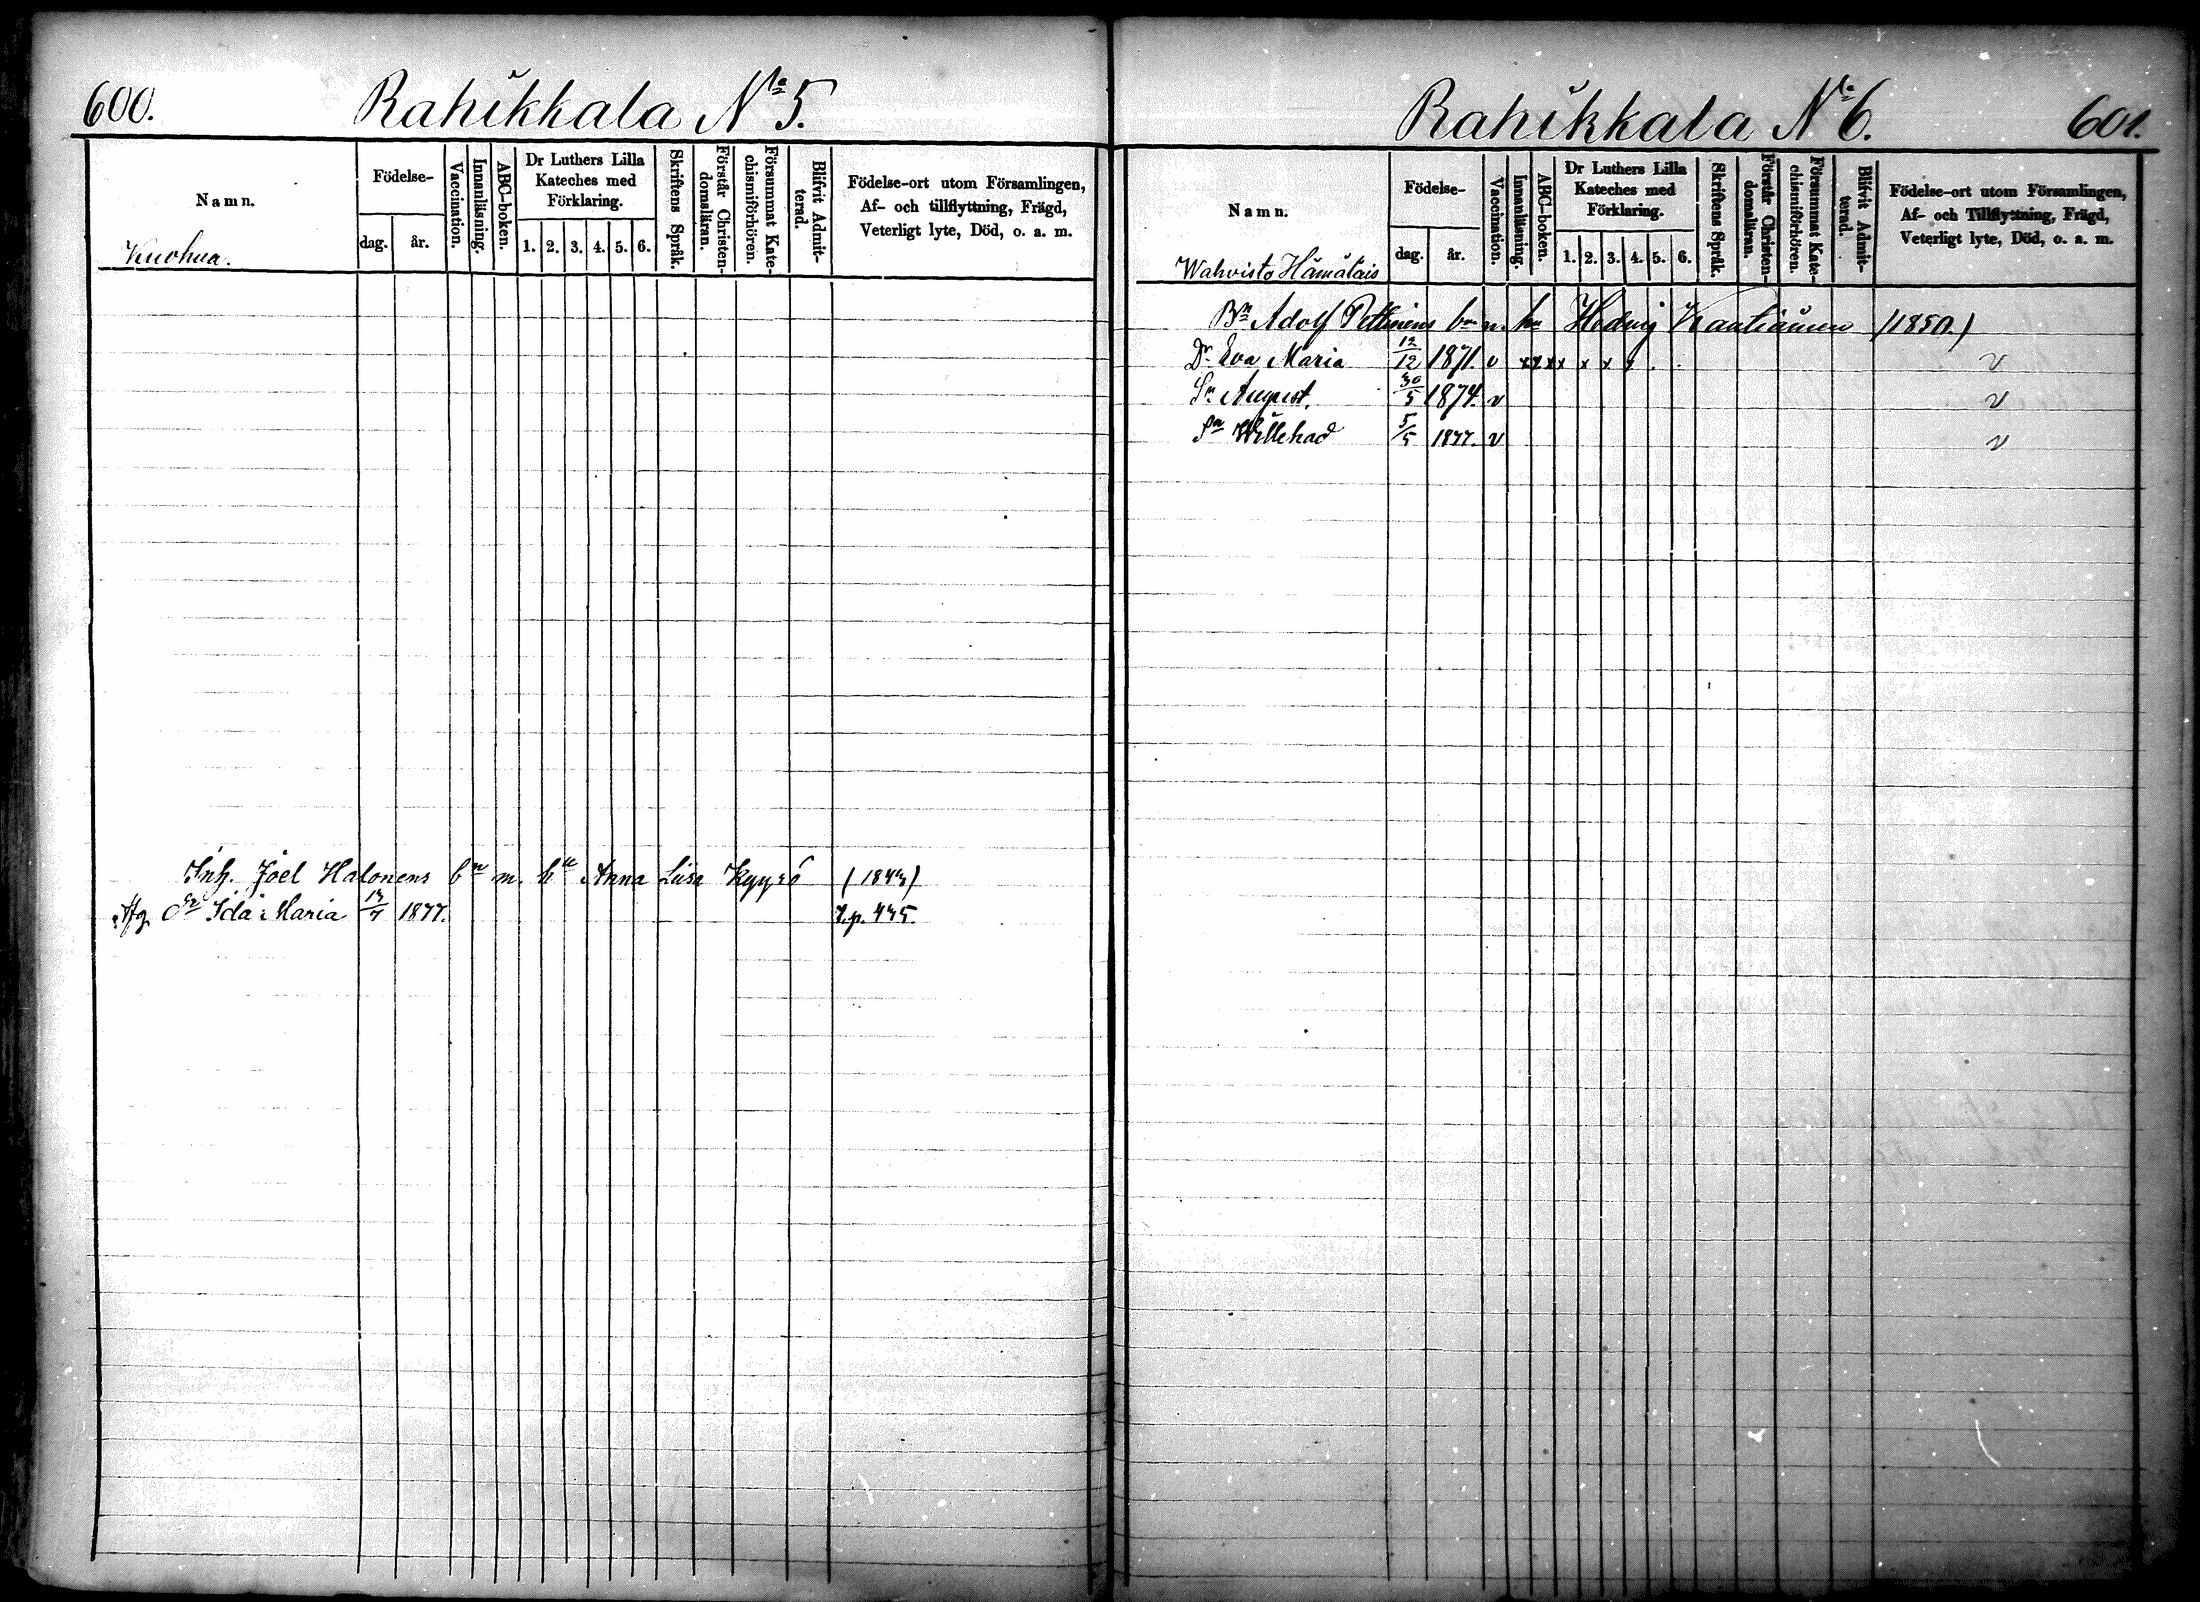 600. Rahikkala No 5.
Namn.
Födelse-
dag. år.
Vaccination.
Innanläsning.
ABC-boken.
Dr Luthers Lilla Kateches med Förklaring.
1. 2. 3. 4. 5. 6.
Skriftens Språk.
Förstår Christendomsläran.
Försummat Katechismiförhören.
Blifvit Admitterad.
Födelse-ort utom Församlingen,
Af- och tillflyttning, Frägd,
Veterligt lyte, Död, o. a. m.
Kuohua.
Inh. Joel Halonens bn m. hu Anna Lisa Kyyrö (1843)
Afg. Dr Ida Maria 13/7 1877. t.p. 435.
Rahikkala No 6. 601.
Namn.
Födelse-
dag. år.
Vaccination.
Innanläsning.
ABC-boken.
Dr Luthers Lilla Kateches med Förklaring.
1. 2. 3. 4. 5. 6.
Skriftens Språk.
Förstår Christen-domsläran.
Försummat Kate-chismiförhören.
Blifvit Admit-terad.
Födelse-ort utom Församlingen,
Af- och Tillflyttning, Frägd,
Veterligt lyte, Död, o. a. m.
Wahvisto Hämäläis
Bn Adolf Pettinens bn m. hu Hedvig (1850.)
Dr Eva Maria 12/12 1871. v x x x x x x x v
Sn August. 30/5 1874. v v
Sn Willehad 5/5 1877. v v